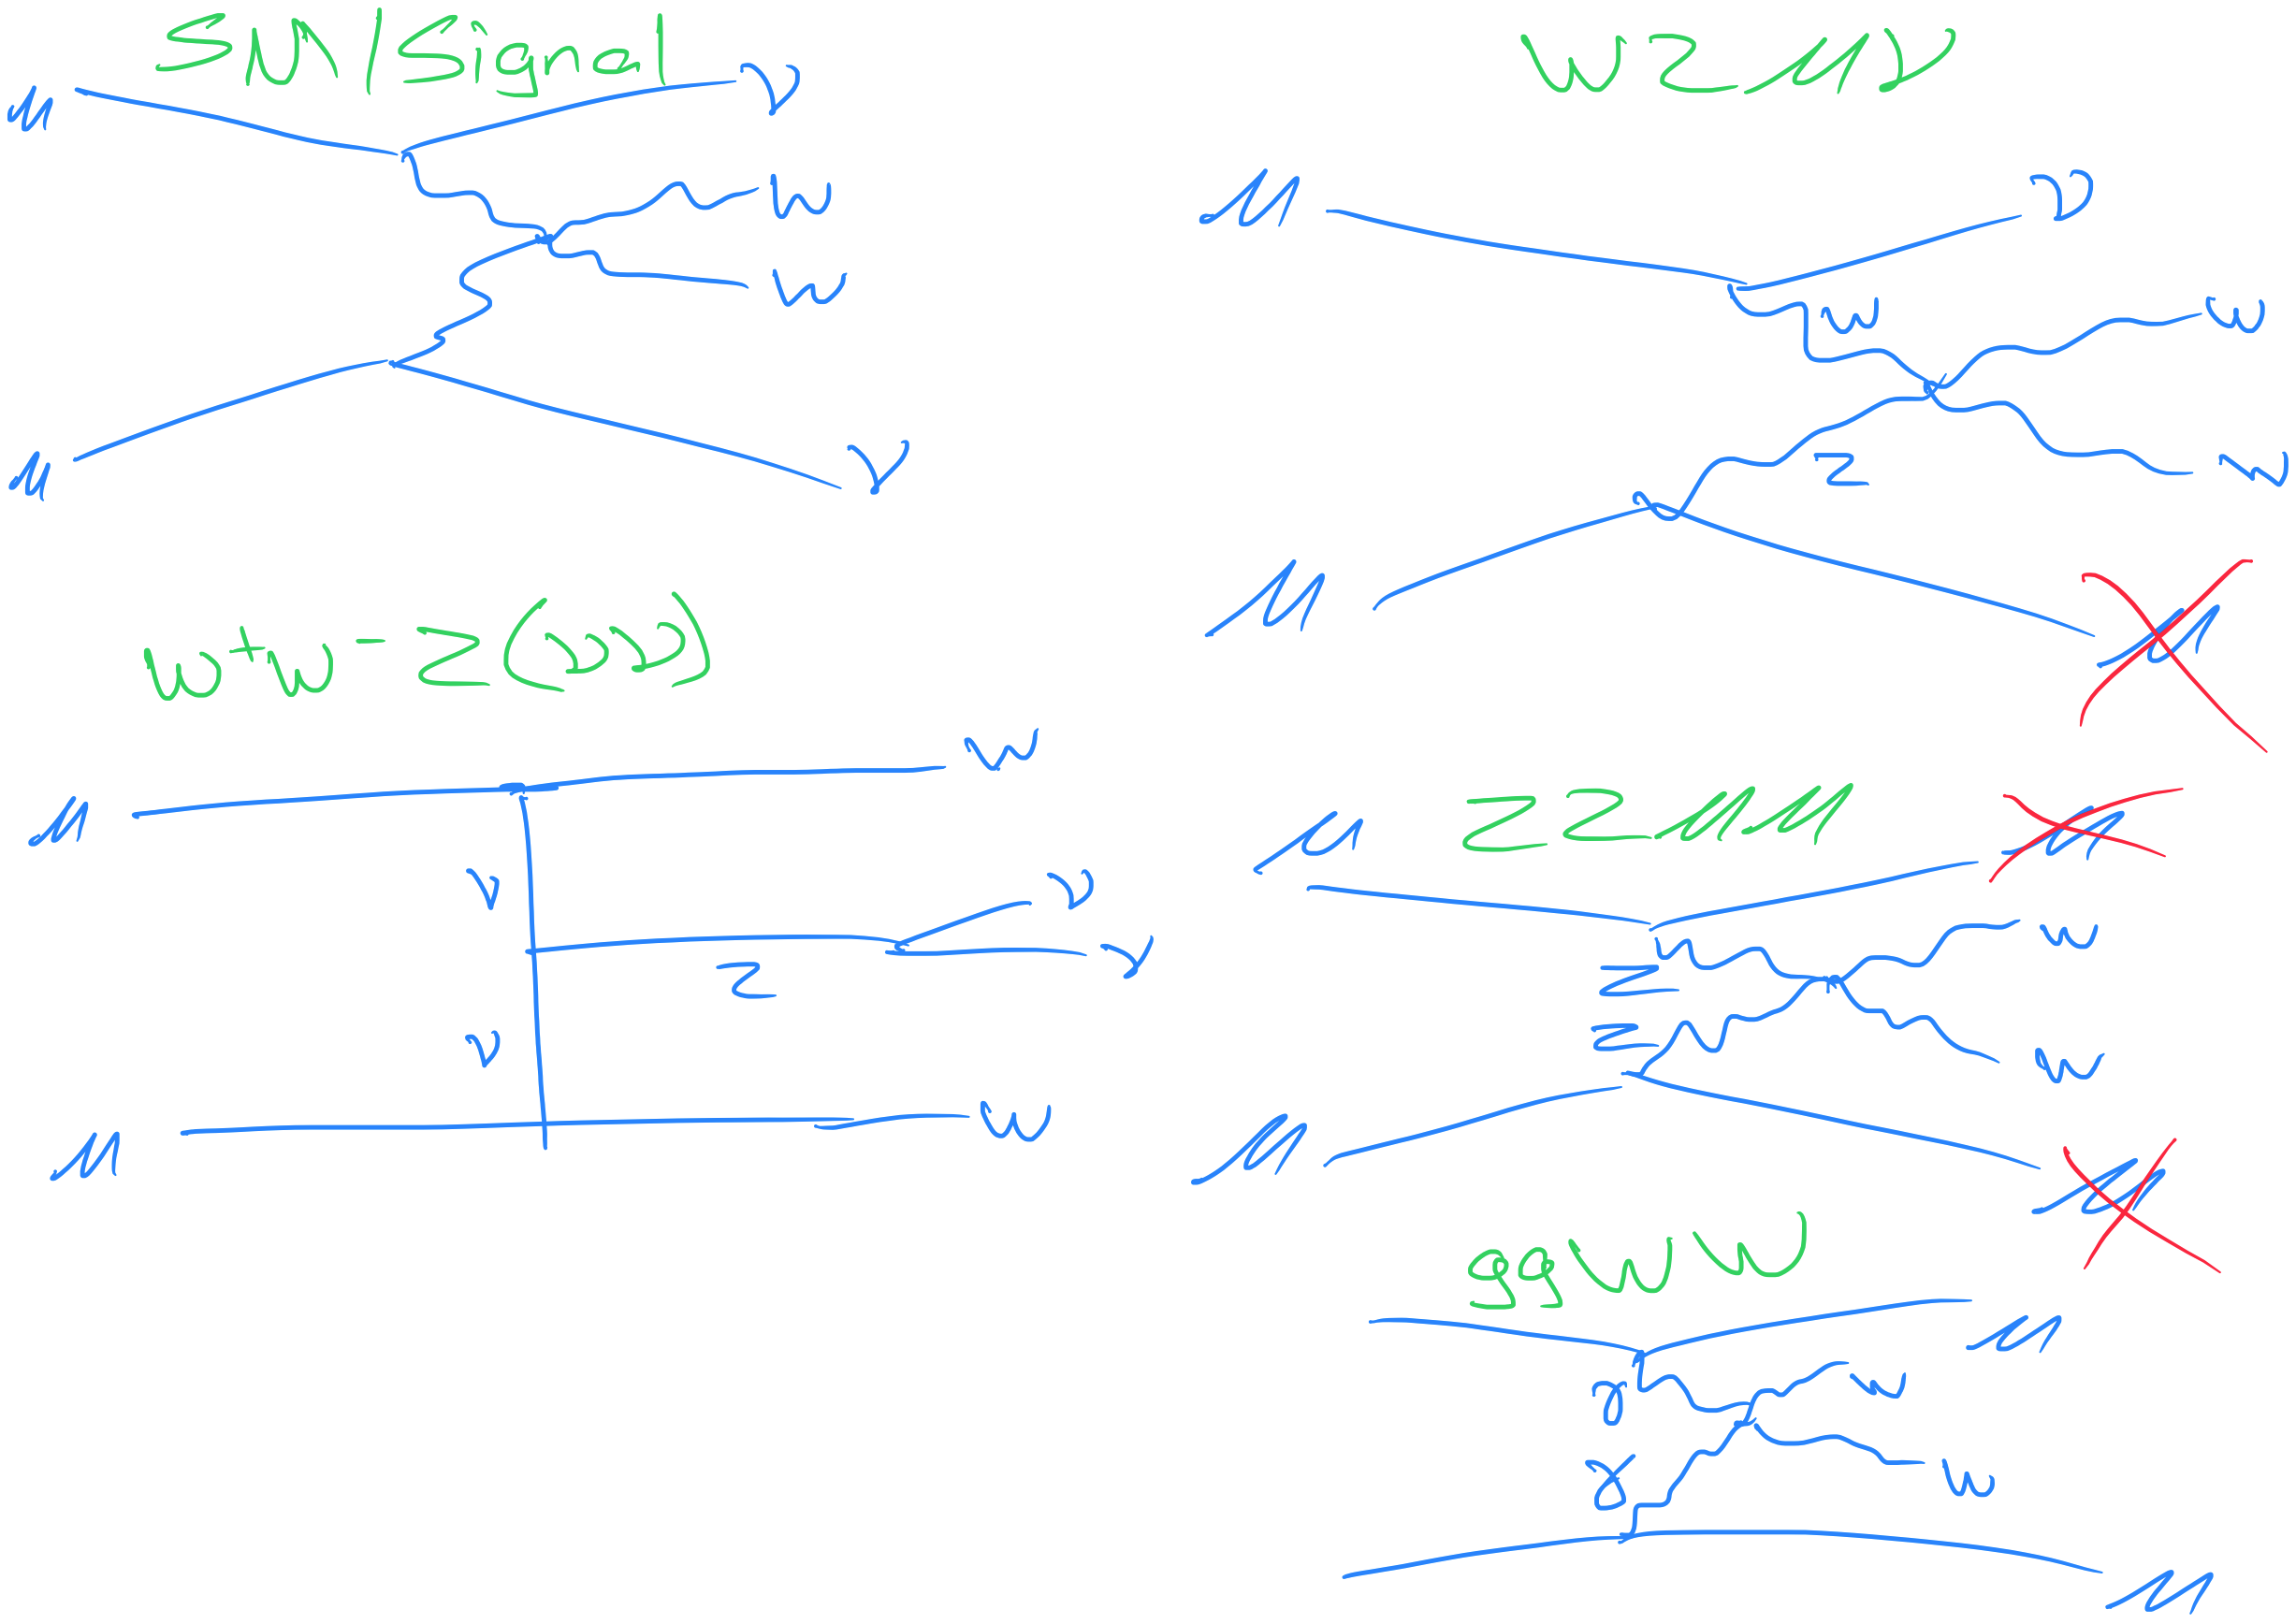 SM/Signal
μ
ν
W
W
μ
ν
WZμν
μ
ν
W
W
W
Z
μ
μ
W+W-Z(νν)
μ
W
ν
ν
Z
ν
ν
μ
W
ZZμμ
μ
μ
W
Z
Z
W
μ
μ
ggWW
μ
γ
W
γ
W
μ